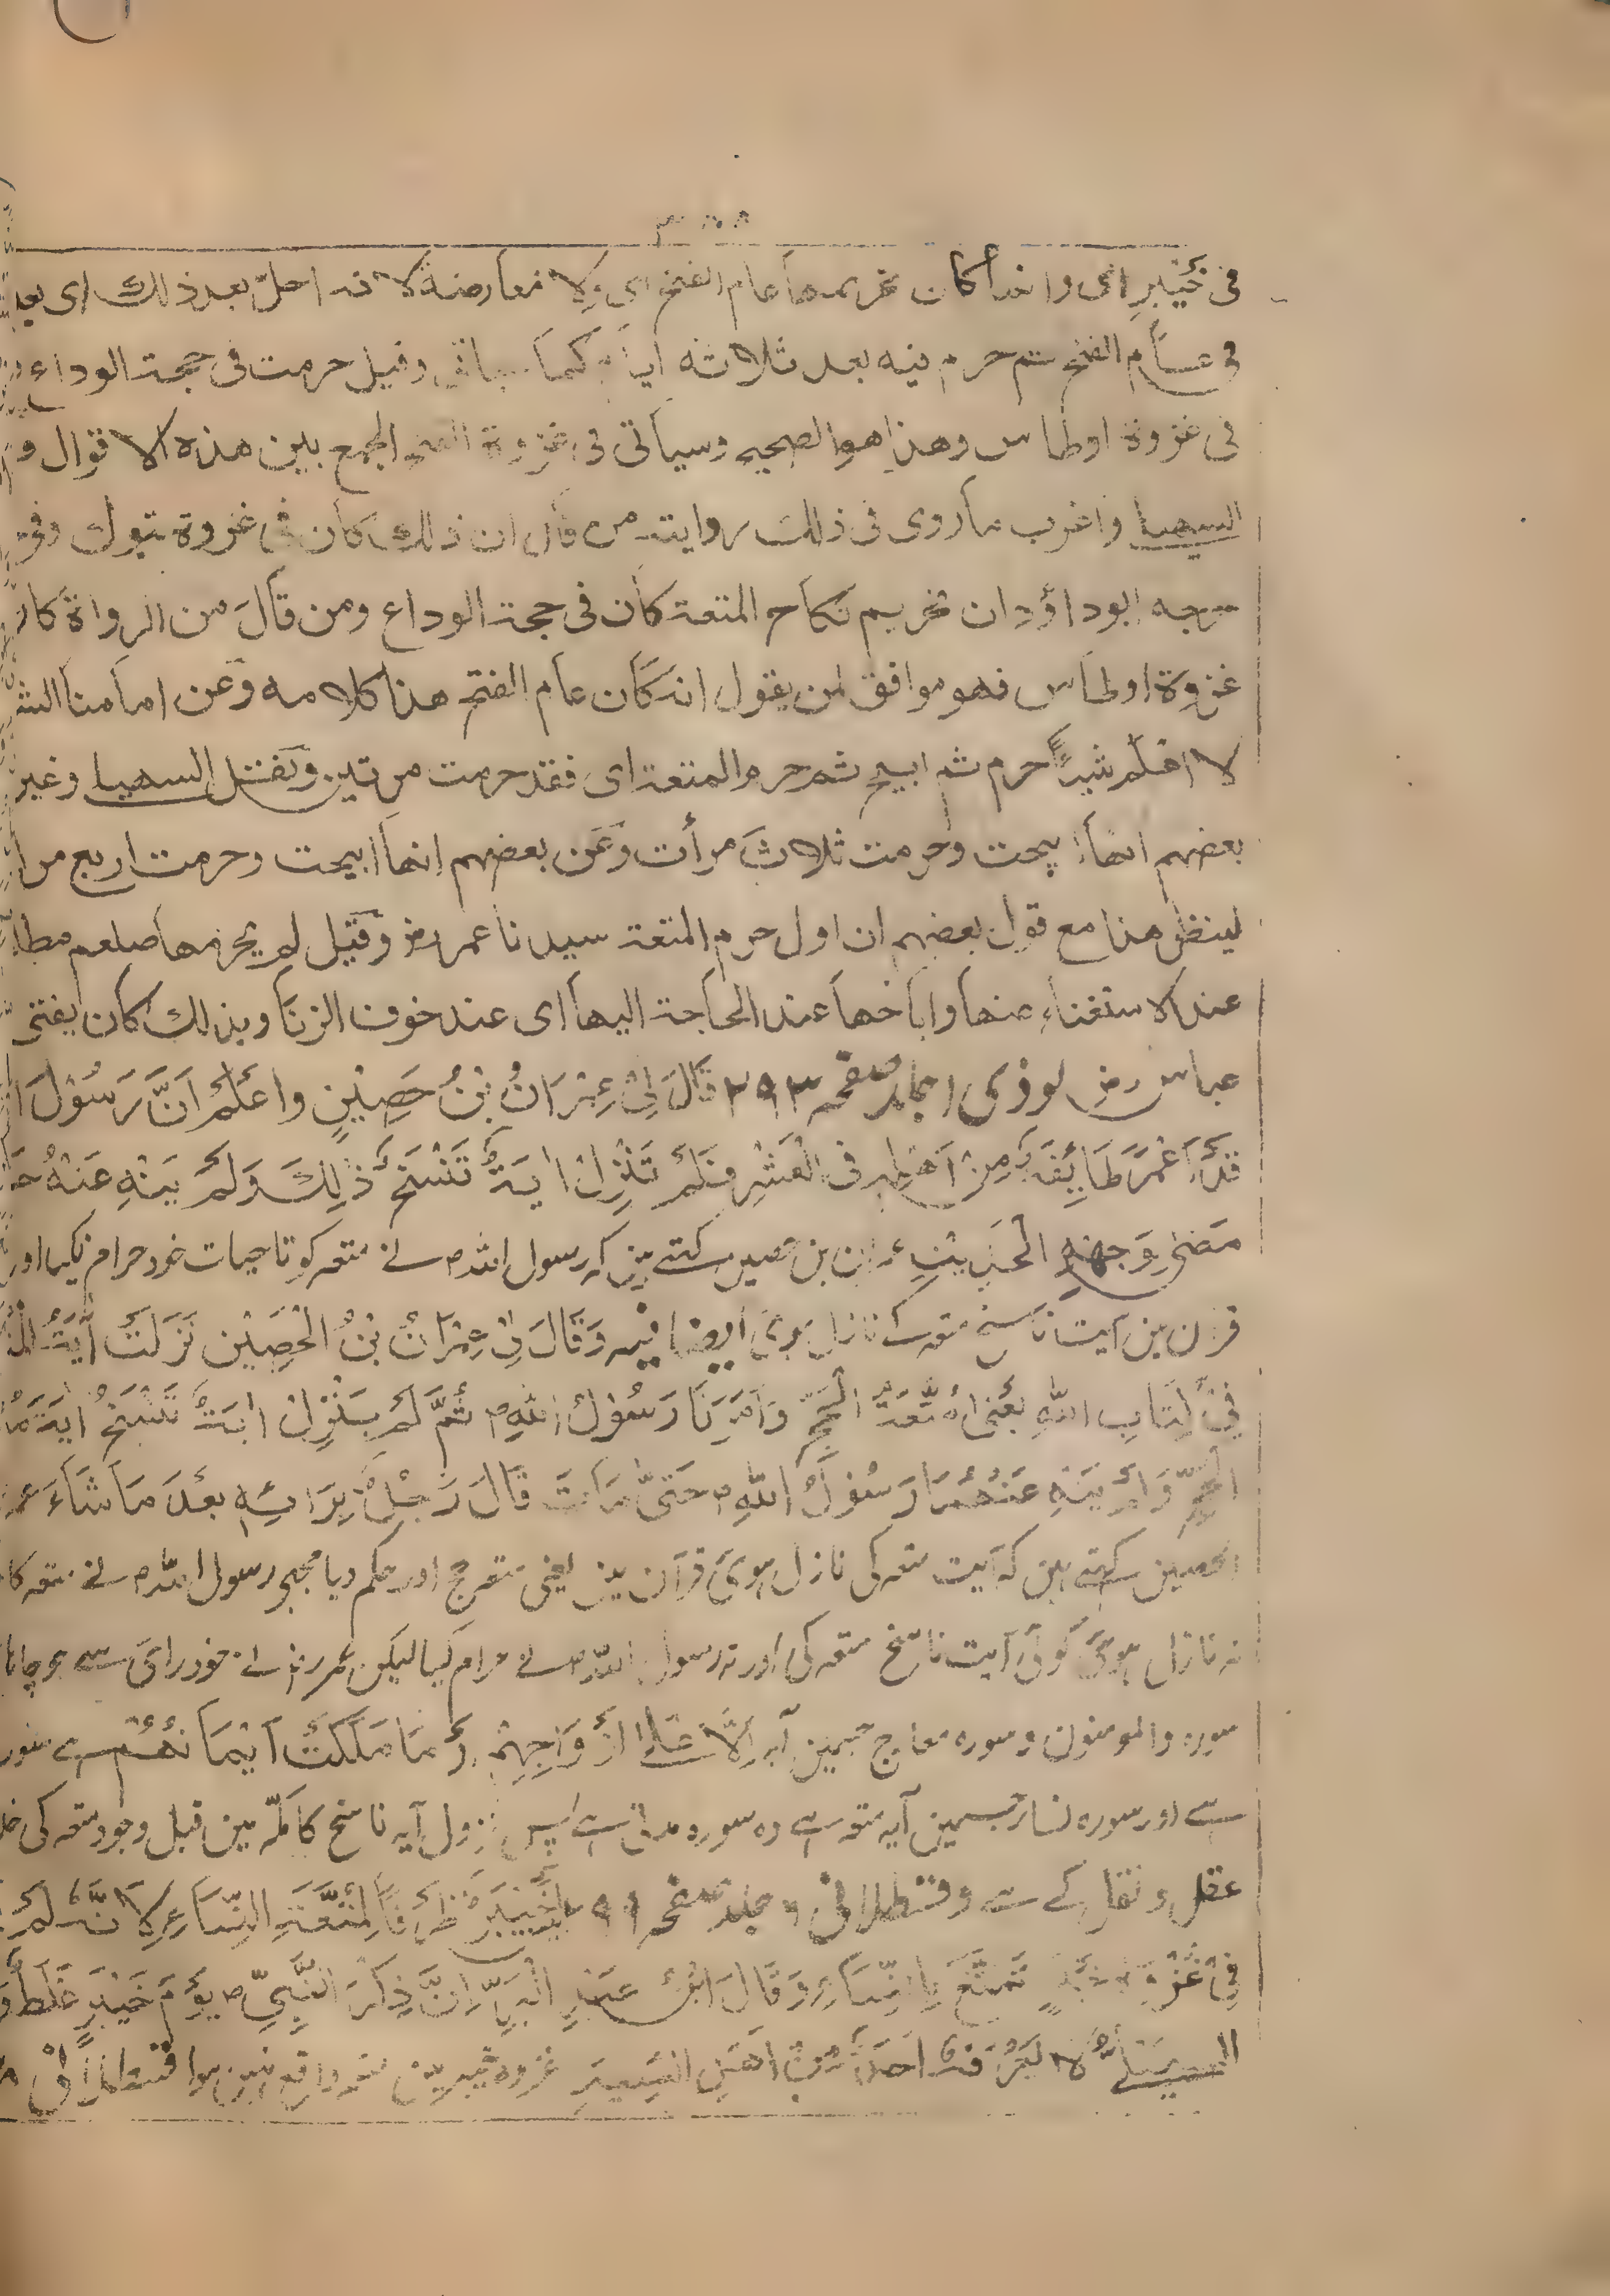 ۳۰۸
فی خَیْبَرِ ای وانما کان تحریمها عام الفتح ای ولا معارضة لانه احلّ بعد ذلك ای بعد
فی عام الفتح ثم حرم فیه بعد ثلاثه ایام کما سیاتی وقیل حرمت فی حجة الوداع
فی غزوة اوطاس وهذا هو الصحیح وسیاتی فی غزوة الفتح الجمع بین هذه الاقوال و
السهیلی واغرب ماروی فی ذلك روایة من قال ان ذلك كان فی غزوة تبوك وفی
خرجه ابوداؤد ان تحریم نکاح المتعة کان فی حجة الوداع ومن قالَ من الرواة کان
غزوة اوطاس فهو موافق لمن یقول انه کان عام الفتح هذا کلامه وعن امامنا
لا اعلم شیئًا حرم ثم ابیح ثم حرم المتعة ای فقد حرمت مرتین ونقل السهیلی وغیر
بعضهم انها ابیحت وحرمت ثلاث مرات وعن بعضهم انها ابیحت وحرمت اربع
لینظر هذا مع قول بعضهم ان اول حرم المتعة سیدنا عمر رض وقیل لم یحرمها صلعم
عند الاستغناء عنها واباحها عند الحاجة الیها ای عند خوف الزنا وبذلك کان یفتی
عباس رض نووی ۱ جلد صفحه ۲۹۳ قَالَ لِیْ عِمْرَانُ بْنُ حَصِیْنٍ واعْلَمْ اَنَّ رَسُوْلَ
قَدْ اَعْمَرَ طَائِفَةً مِنْ اَهْلِهِ فی الْعَشْرِ فَلَمْ تَنْزِلْ اٰیَةٌ تَنْسَخُ ذٰلِكَ وَلَمْ یَنْهِ عَنْهُ
مَضیٰ وَجْهِهِ الْحَدِیْث عمران بن حصین کہتے ہین کہ رسول اللہ ص نے متعہ کو تا حیات خود حرام نکیا اور
قران مین آیت ناسخ متعہ کے نازل ہوی ایضا فیہ وَقَالَ لِیْ عِمْرَانُ بْنُ الْحَصِیْن نَزَلَتْ آیَةُ
فِیْ کِتَابِ اللهِ یَعْنِیْ مُتْعَةَ الْحَجِّ وَاَمَرَنَا رَسُوْلُ اللهِ ص ثُمَّ لَمْ یَنْزِلْ اٰیَةٌ تَنْسَخُ اٰیَةَ
الْحَجِّ وَلَمْ یَنْهِ عَنْهُمَا رَسُوْلُ اللهِ ص حَتّٰی مَاتَ قَالَ رَجُلٌ بِرَائِهِ بَعْدَ مَا شَاءَ
الحصین کہتے ہین کہ آیت متعہ کی نازل ہوی قرآن مین یعنی متعہ حج اور حکم دیا مجھی رسول اللہ ص نے متعہ کا
نہ نازل ہوی کوی آیت ناسخ متعہ کی اور نہ رسول اللہ ص نے حرام کیا لیکن عمر رض نے خود رای سے جو چاہا
سورہ والمومنون و سورہ معارج جسمین آیہ اِلَّا عَلیٰ اَزْوَاجِهِمْ اَوْ مَا مَلَکَتْ اَیْمَانُهُمْ ہے
ہے اور سورہ نسا جسمین آیہ متعہ ہے وہ سورہ مدنی ہے پس نزول آیہ ناسخ کا مکّہ مین قبل وجود متعہ کی
عقل و نقل کے ہے و قسطلانی ۶ جلد صفحه ۹۹ الْخَیْبَرِ ظَرْفًا لِمُتْعَةِ النِّسَاءِ لِاَنَّهُ لَمْ
فِیْ غَزْوَةِ خَیْبَرَ تَمَتُّعٌ بِالنِّسَاءِ وَقَالَ ابْنُ عَبْدِ الْبَرِّ اِنَّ ذِکْرَ النَّهْیِ یَوْمَ خَیْبَرِ غَلَطٌ
السهیلی لا یَعْرِفُهُ اَحَدٌ مِنْ اَهْلِ السِّیَرِ غزوہ خیبر مین متعہ واقع نہین ہوا قسطلانی